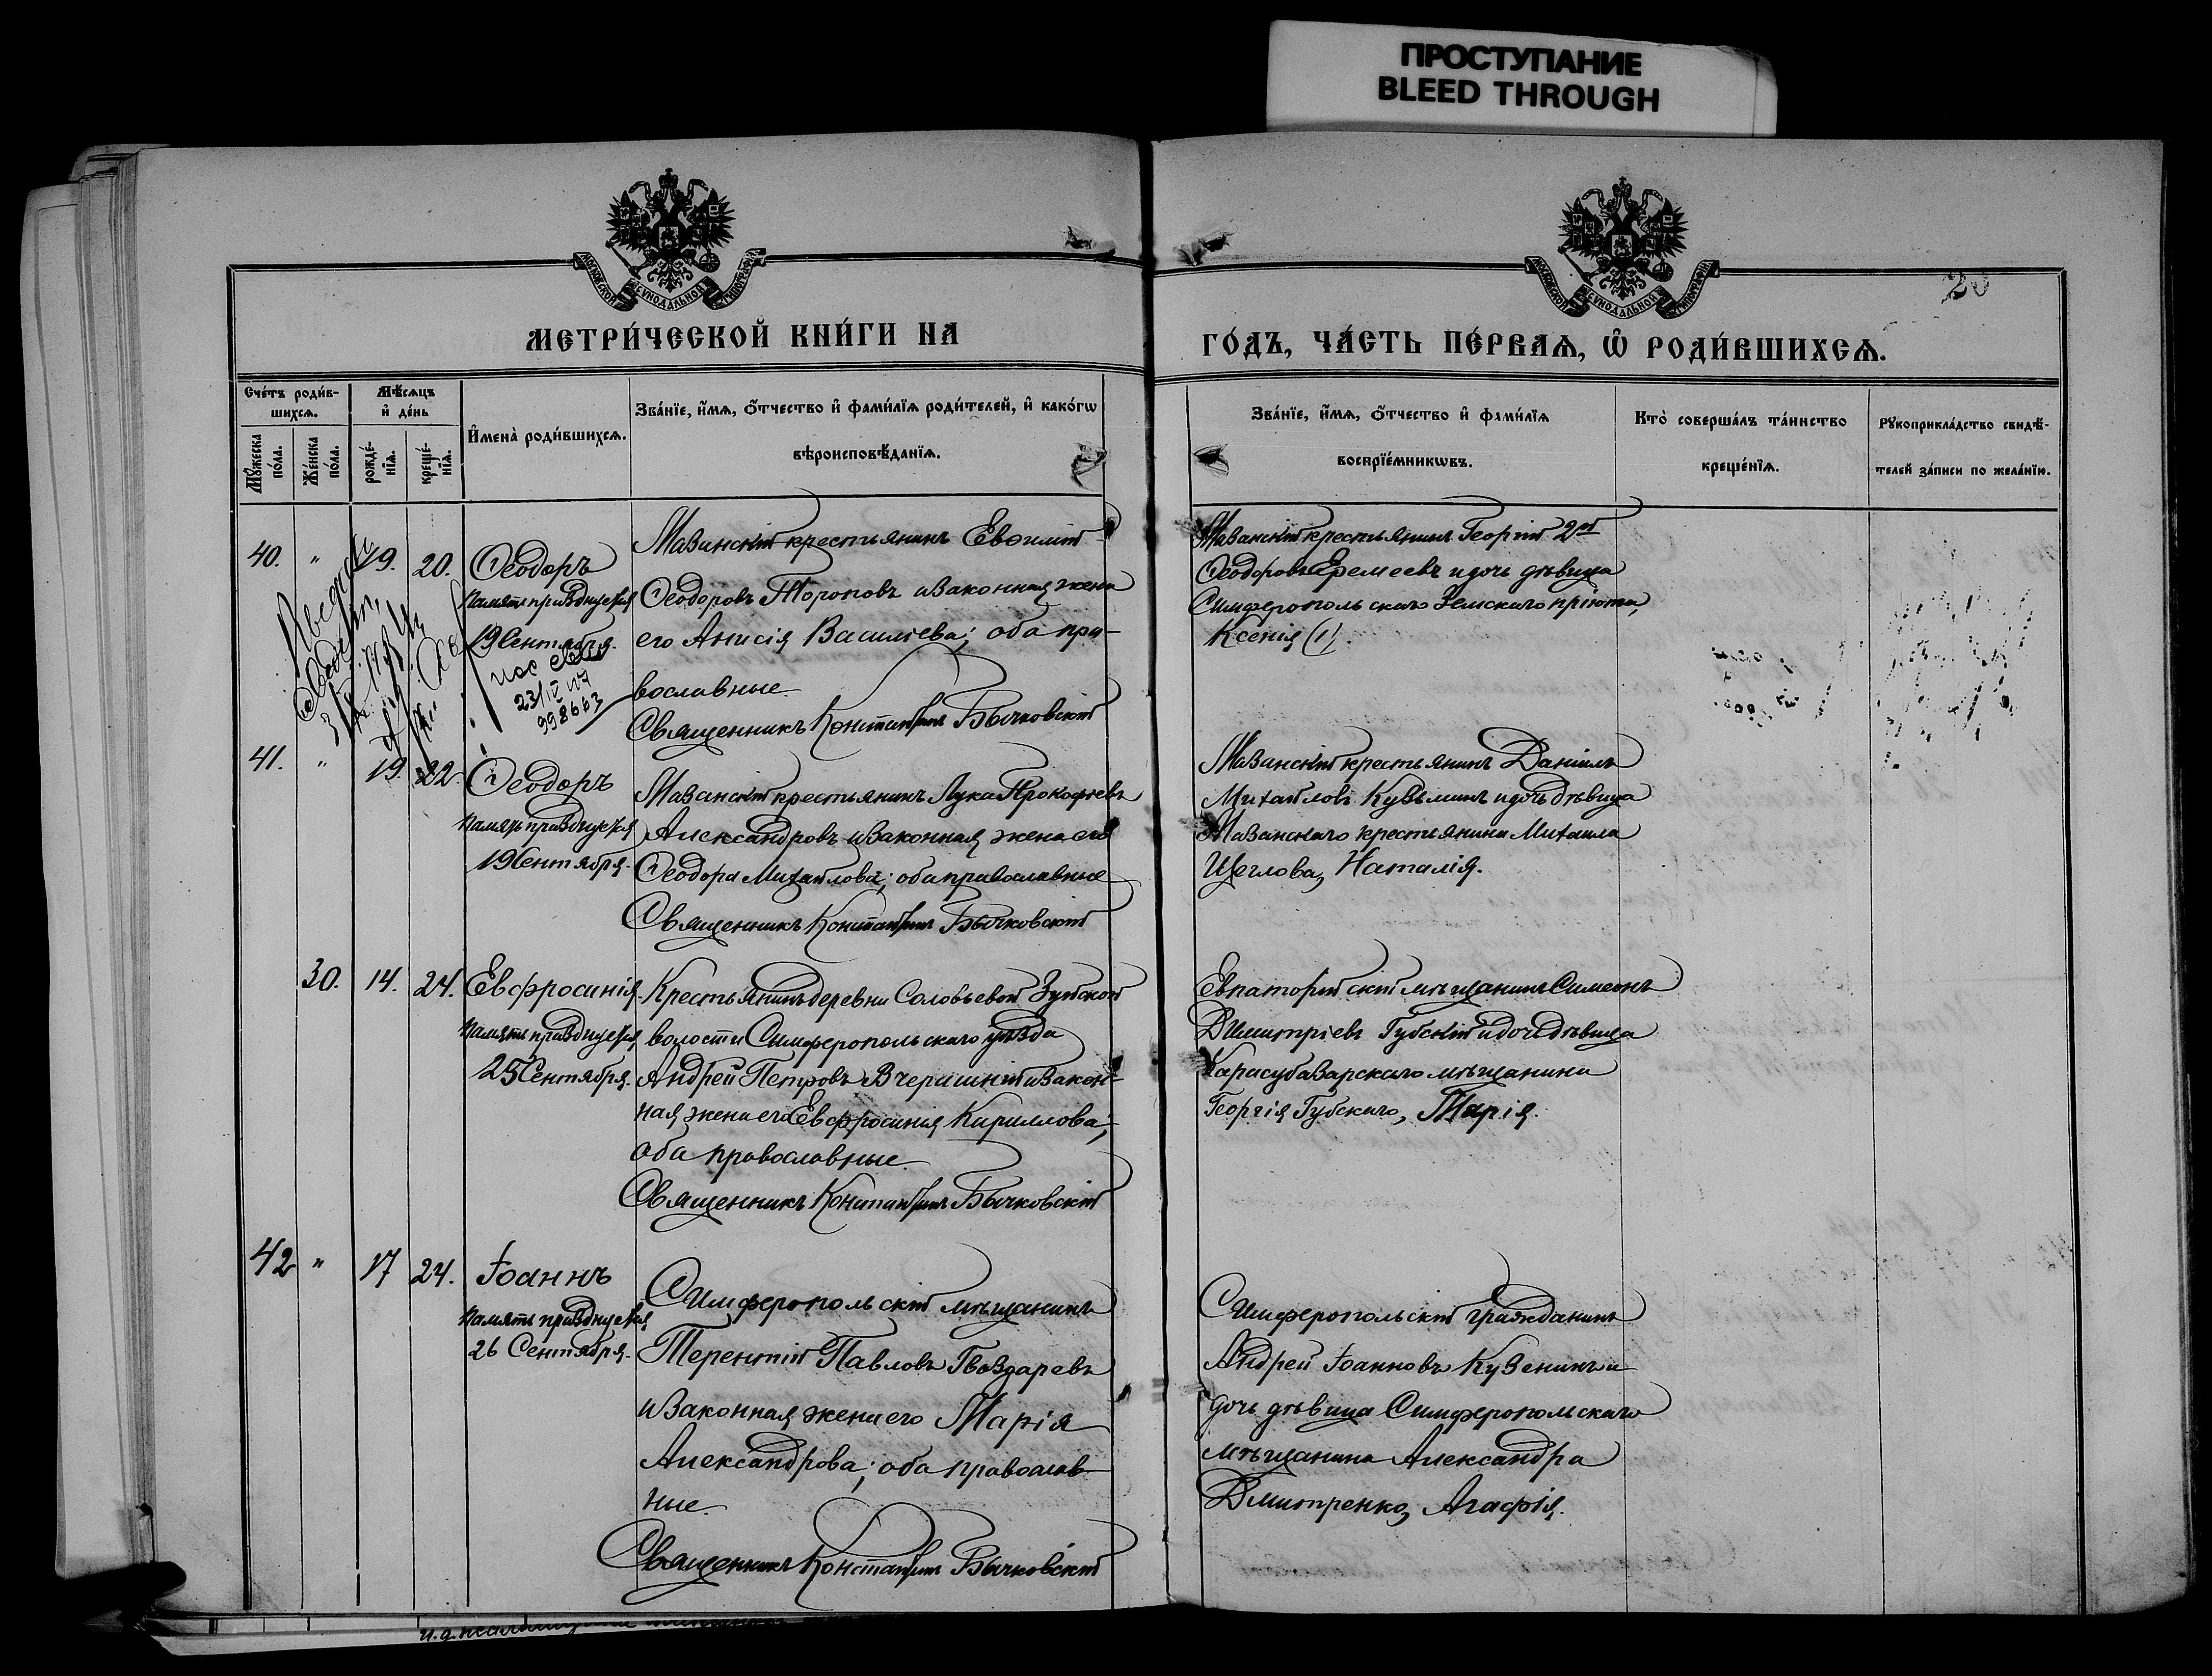 ПРОСТУПАНИЕ
BLEED THROUGH
МОСКОВСКОЙ СѴНОДАЛЬНОЙ ТИПОГРАФІИ
МОСКОВСКОЙ СѴНОДАЛЬНОЙ ТИПОГРАФІИ
МЕТРИ́ЧЕСКОЙ КНИ́ГИ НА
ГО́ДЪ, ЧА́СТЬ ПЕ́РВАѦ, Ѽ РОДИ́ВШИХСѦ.
Сче́тъ роди́в-
шихсѧ.
Мꙋ́жеска по́ла.
Же́нска по́ла.
Мѣ́сѧцъ
и҆ де́нь
рожде́-
нїѧ.
креще́-
нїѧ.
И҆мена̀ роди́вшихсѧ.
Зва́нїе, и҆́мѧ, о҆́тчество и҆ фами́лїѧ роди́телей, и҆ како́гѡ
вѣроисповѣ́данїѧ.
Зва́нїе, и҆́мѧ, о҆́тчество и҆ фами́лїѧ
воспрїе́мникѡвъ.
Кто̀ соверша́лъ та́инство
креще́нїѧ.
Рꙋкоприкла́дство свидѣ́-
телей за́писи по жела́нїю.
40. " 19. 20. Ѳеодоръ
Память празднуется
19 Сентября.
23/IV 17
998663
Мазанскій крестьянинъ Евѳимій
Ѳеодоровъ Тороповъ и законная жена
его Анисія Васильева; оба пра-
вославные.
Священникъ Константинъ Бычковскій
Мазанскій крестьянинъ Георгій 2й
Ѳеодоровъ Еремеевъ и дочь дѣвица
Симферопольскаго Земскаго пріюта,
Ксенія (1).
41. " 19. 22. Ѳеодоръ
Память празднуется
19 Сентября.
Мазанскій крестьянинъ Лука Прокофіевъ
Александровъ и законная жена его
Ѳеодора Михайлова; оба православные
Священникъ Константинъ Бычковскій
Мазанскій крестьянинъ Даніилъ
Михайловъ Кузьминъ и дочь дѣвица
Мазанскаго крестьянина Михаила
Щеглова, Наталія.
30. 14. 24. Евфросинія.
Память празднуется
25 Сентября.
Крестьянинъ деревни Соловьевой Зуйской
волости Симферопольскаго уѣзда
Андрей Петровъ Вчерашній и закон-
ная жена его Евфросинія Кириллова;
оба православные.
Священникъ Константинъ Бычковскій
Евпаторійскій мѣщанинъ Симеонъ
Димитріевъ Губскій и дочь дѣвица
Карасубазарскаго мѣщанина
Георгія Губскаго, Марія.
42 " 17 24. Іоаннъ
Память празднуется
26 Сентября.
Симферопольскій мѣщанинъ
Терентій Павловъ Гвоздаревъ
и законная жена его Марія
Александрова; оба православ-
ные.
Священникъ Константинъ Бычковскій
Симферопольскій гражданинъ
Андрей Іоанновъ Кузенинъ и
дочь дѣвица Симферопольскаго
мѣщанина Александра
Дмитренко, Агафія.